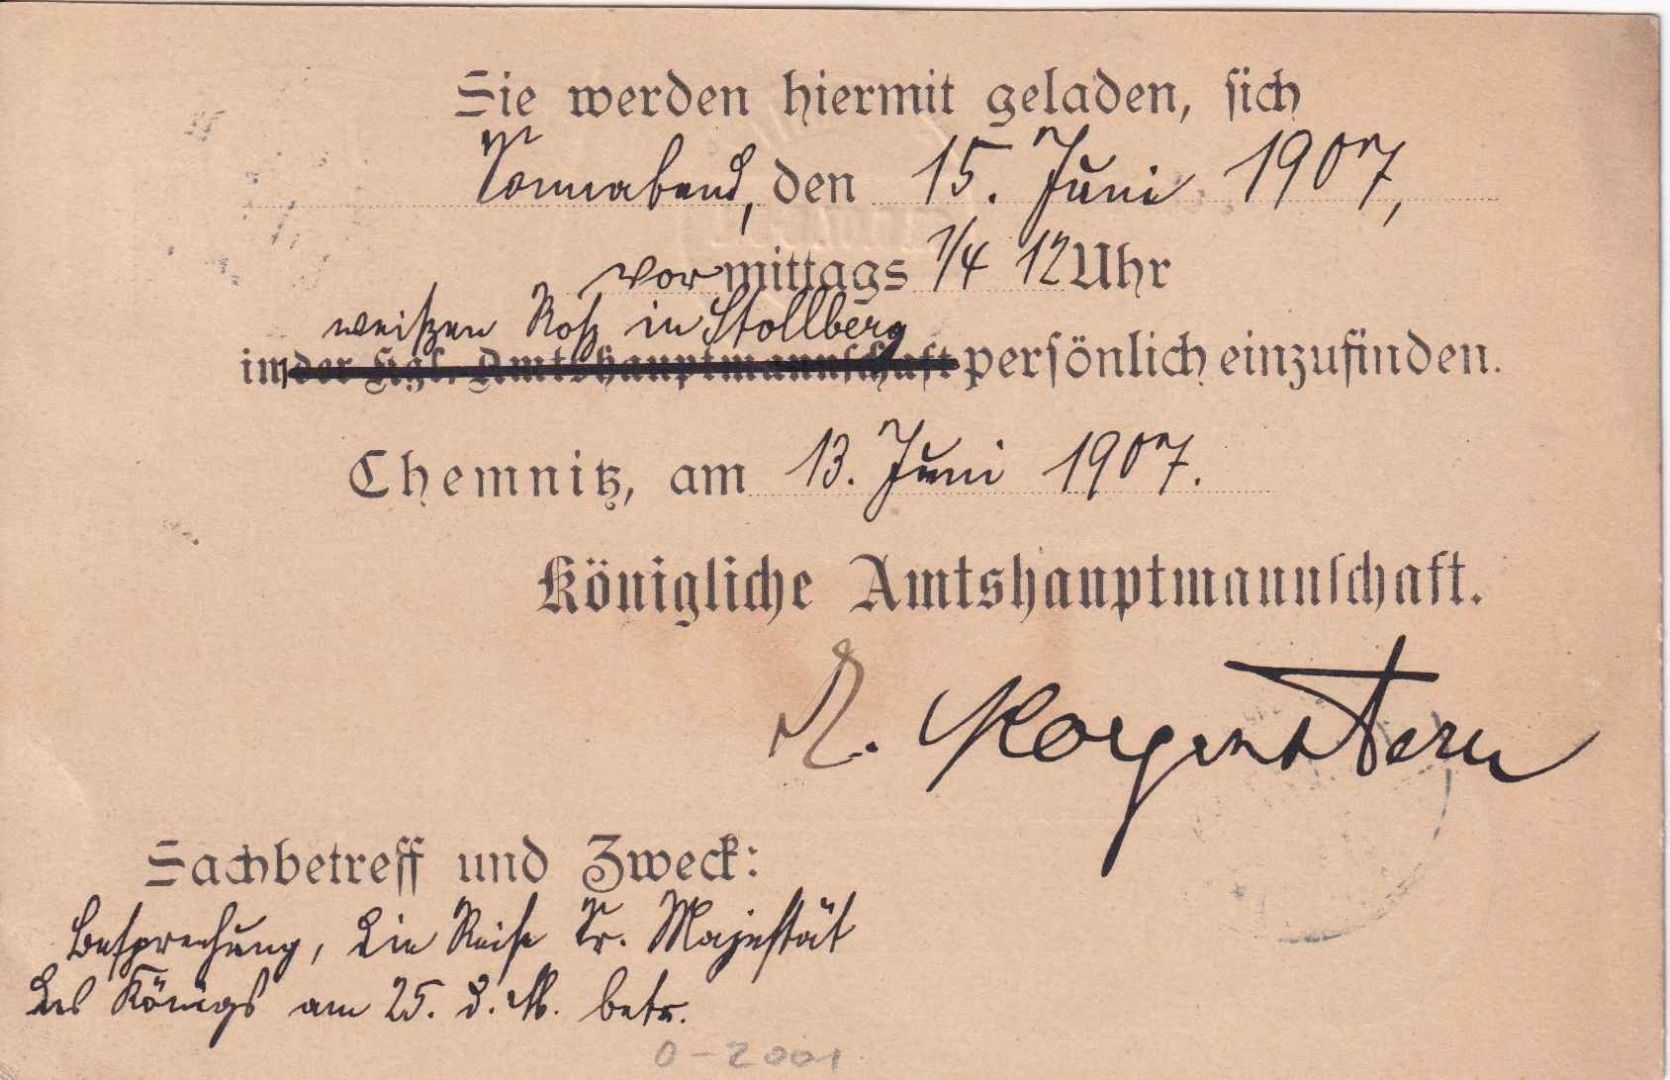 Sie werden hiermit geladen, sich
Sonnabend, den 15. Juni 1907,
vormittags 1/4 12 Uhr
weißen Roß in Stollberg
im der Kgl. Amtshauptmannschaft persönlich einzufinden.
Chemnitz, am 13. Juni 1907.
Königliche Amtshauptmannschaft.
Morgenstern
Sachbetreff und Zweck:
Besprechung, die Reise Sr. Majestät
des Königs am 25. d. M. betr.
0-2001